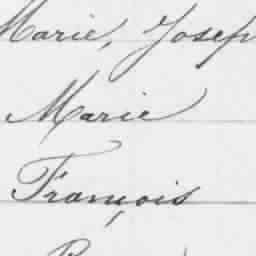 Marie, Josep
Marie
François